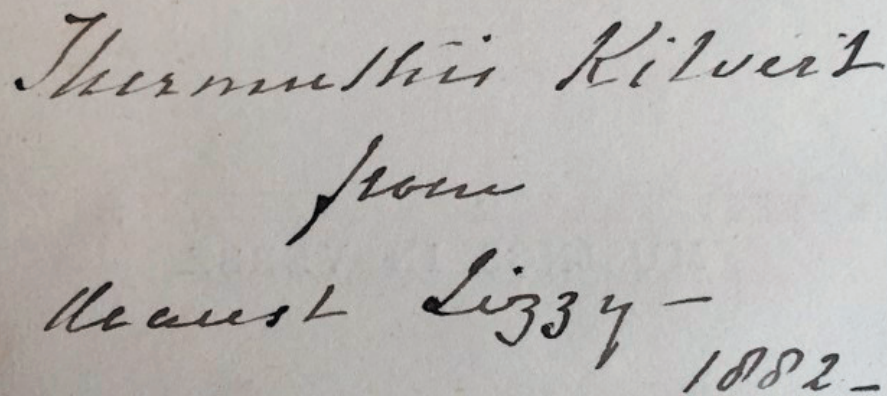 Thermuthis Kilvert
from
dearest Lizzy –
1882 –